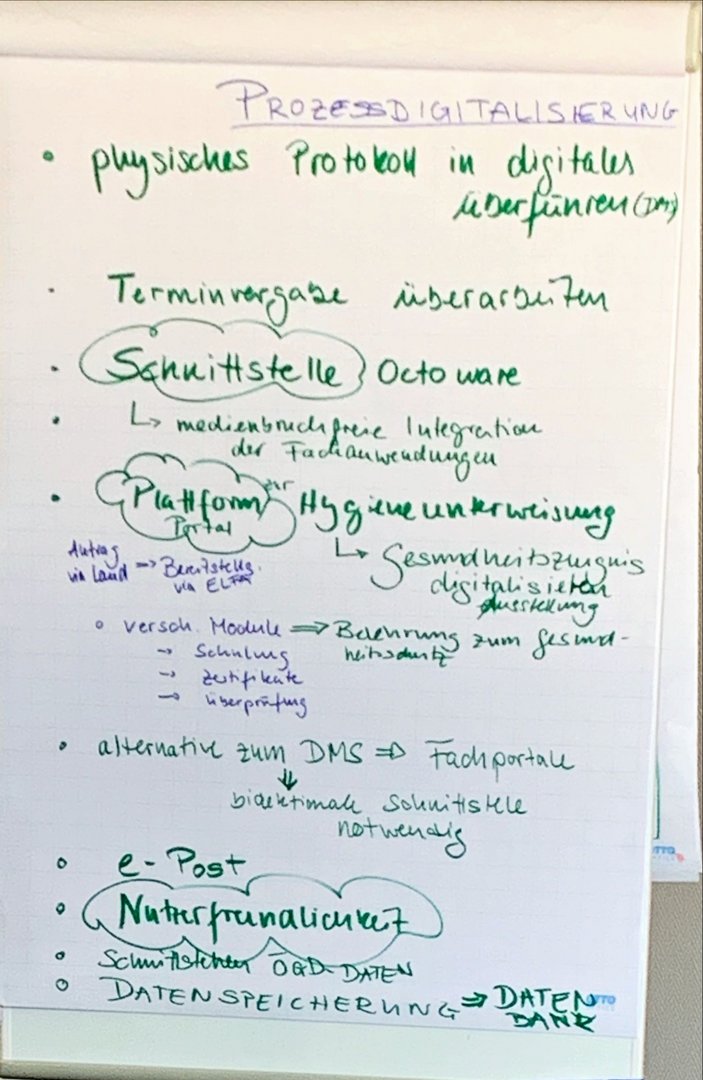 PROZESSDIGITALISIERUNG
• physisches Protokoll in digitales
überführen (DMS)
• Terminvergabe überarbeiten
• Schnittstelle Octoware
• ↳ medienbruchfreie Integration
der Fachanwendungen
• Plattform zur Hygieneunterweisung
Portal
Antrag
via Land → Bereitstellg.
via ELFA
↳ Gesundheitszeugnis
digitalisieren
Ausstellung
◦ versch. Module ⇒ Belehrung zum Gesund-
heitsschutz
→ Schulung
→ Zertifikate
→ Überprüfung
• alternative zum DMS ⇒ Fachportale
⇓
bidirektionale Schnittstelle
notwendig
◦ e-Post
◦ Nutzerfreundlichkeit
◦ Schnittstellen ÖGD-DATEN
◦ DATENSPEICHERUNG ⇒ DATEN
BANK